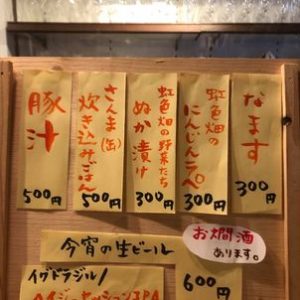 なます
300円
虹色畑の
にんじんラペ
300円
虹色畑の野菜たち
ぬか漬け
300円
さんま(缶)
炊き込みごはん
500円
豚汁
500円
今宵の生ビール
お燗酒
あります。
イグドラジル/
ヘイジーセッションIPA
600円